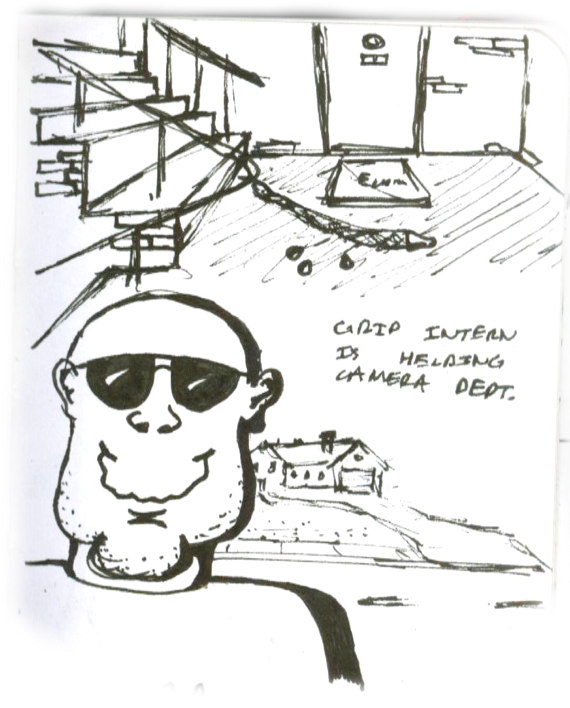 GRIP INTERN
IS HELPING
CAMERA DEPT.